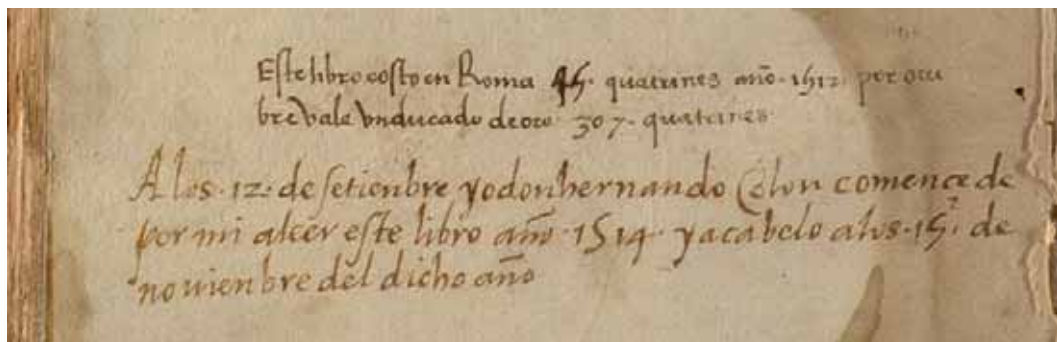 Este libro costo en Roma 45. quatrines año .1512. por otu
bre vale vnducado deoro 307. quatrines
A los .12. de setienbre yo don hernando Colon comence de
por mi a leer este libro año .1514. y acabelo a los .15. de
nouienbre del dicho año